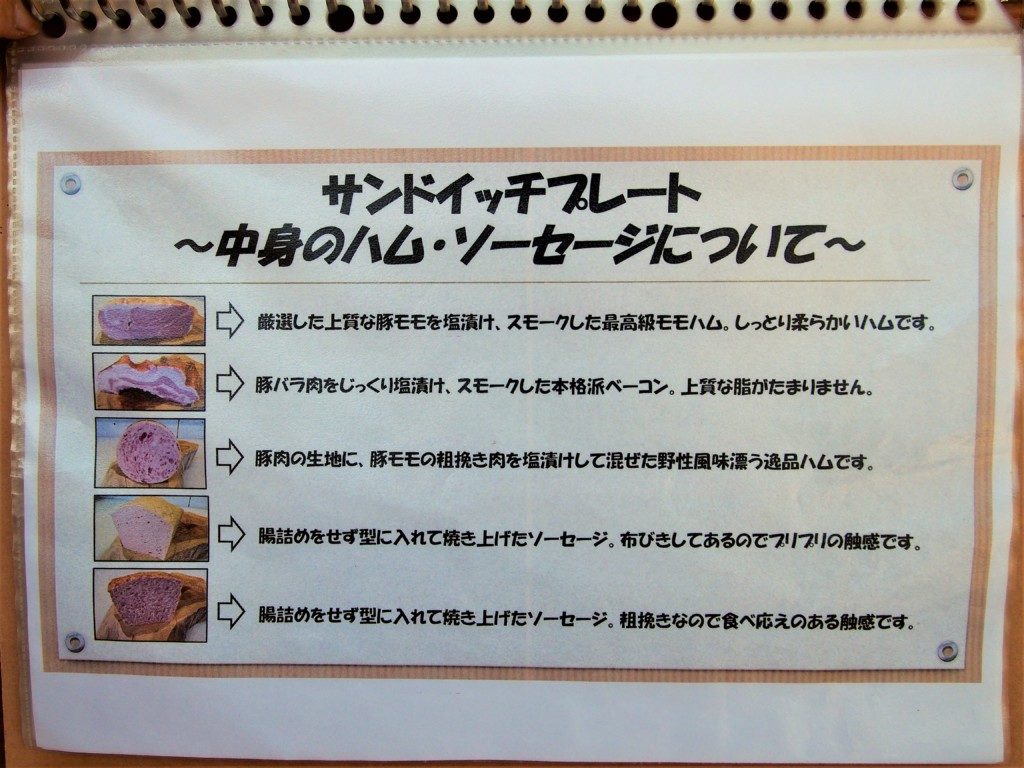 サンドイッチプレート
～中身のハム・ソーセージについて～
厳選した上質な豚モモを塩漬け、スモークした最高級モモハム。しっとり柔らかいハムです。
豚バラ肉をじっくり塩漬け、スモークした本格派ベーコン。上質な脂がたまりません。
豚肉の生地に、豚モモの粗挽き肉を塩漬けして混ぜた野性風味漂う逸品ハムです。
腸詰めをせず型に入れて焼き上げたソーセージ。布びきしてあるのでプリプリの触感です。
腸詰めをせず型に入れて焼き上げたソーセージ。粗挽きなので食べ応えのある触感です。